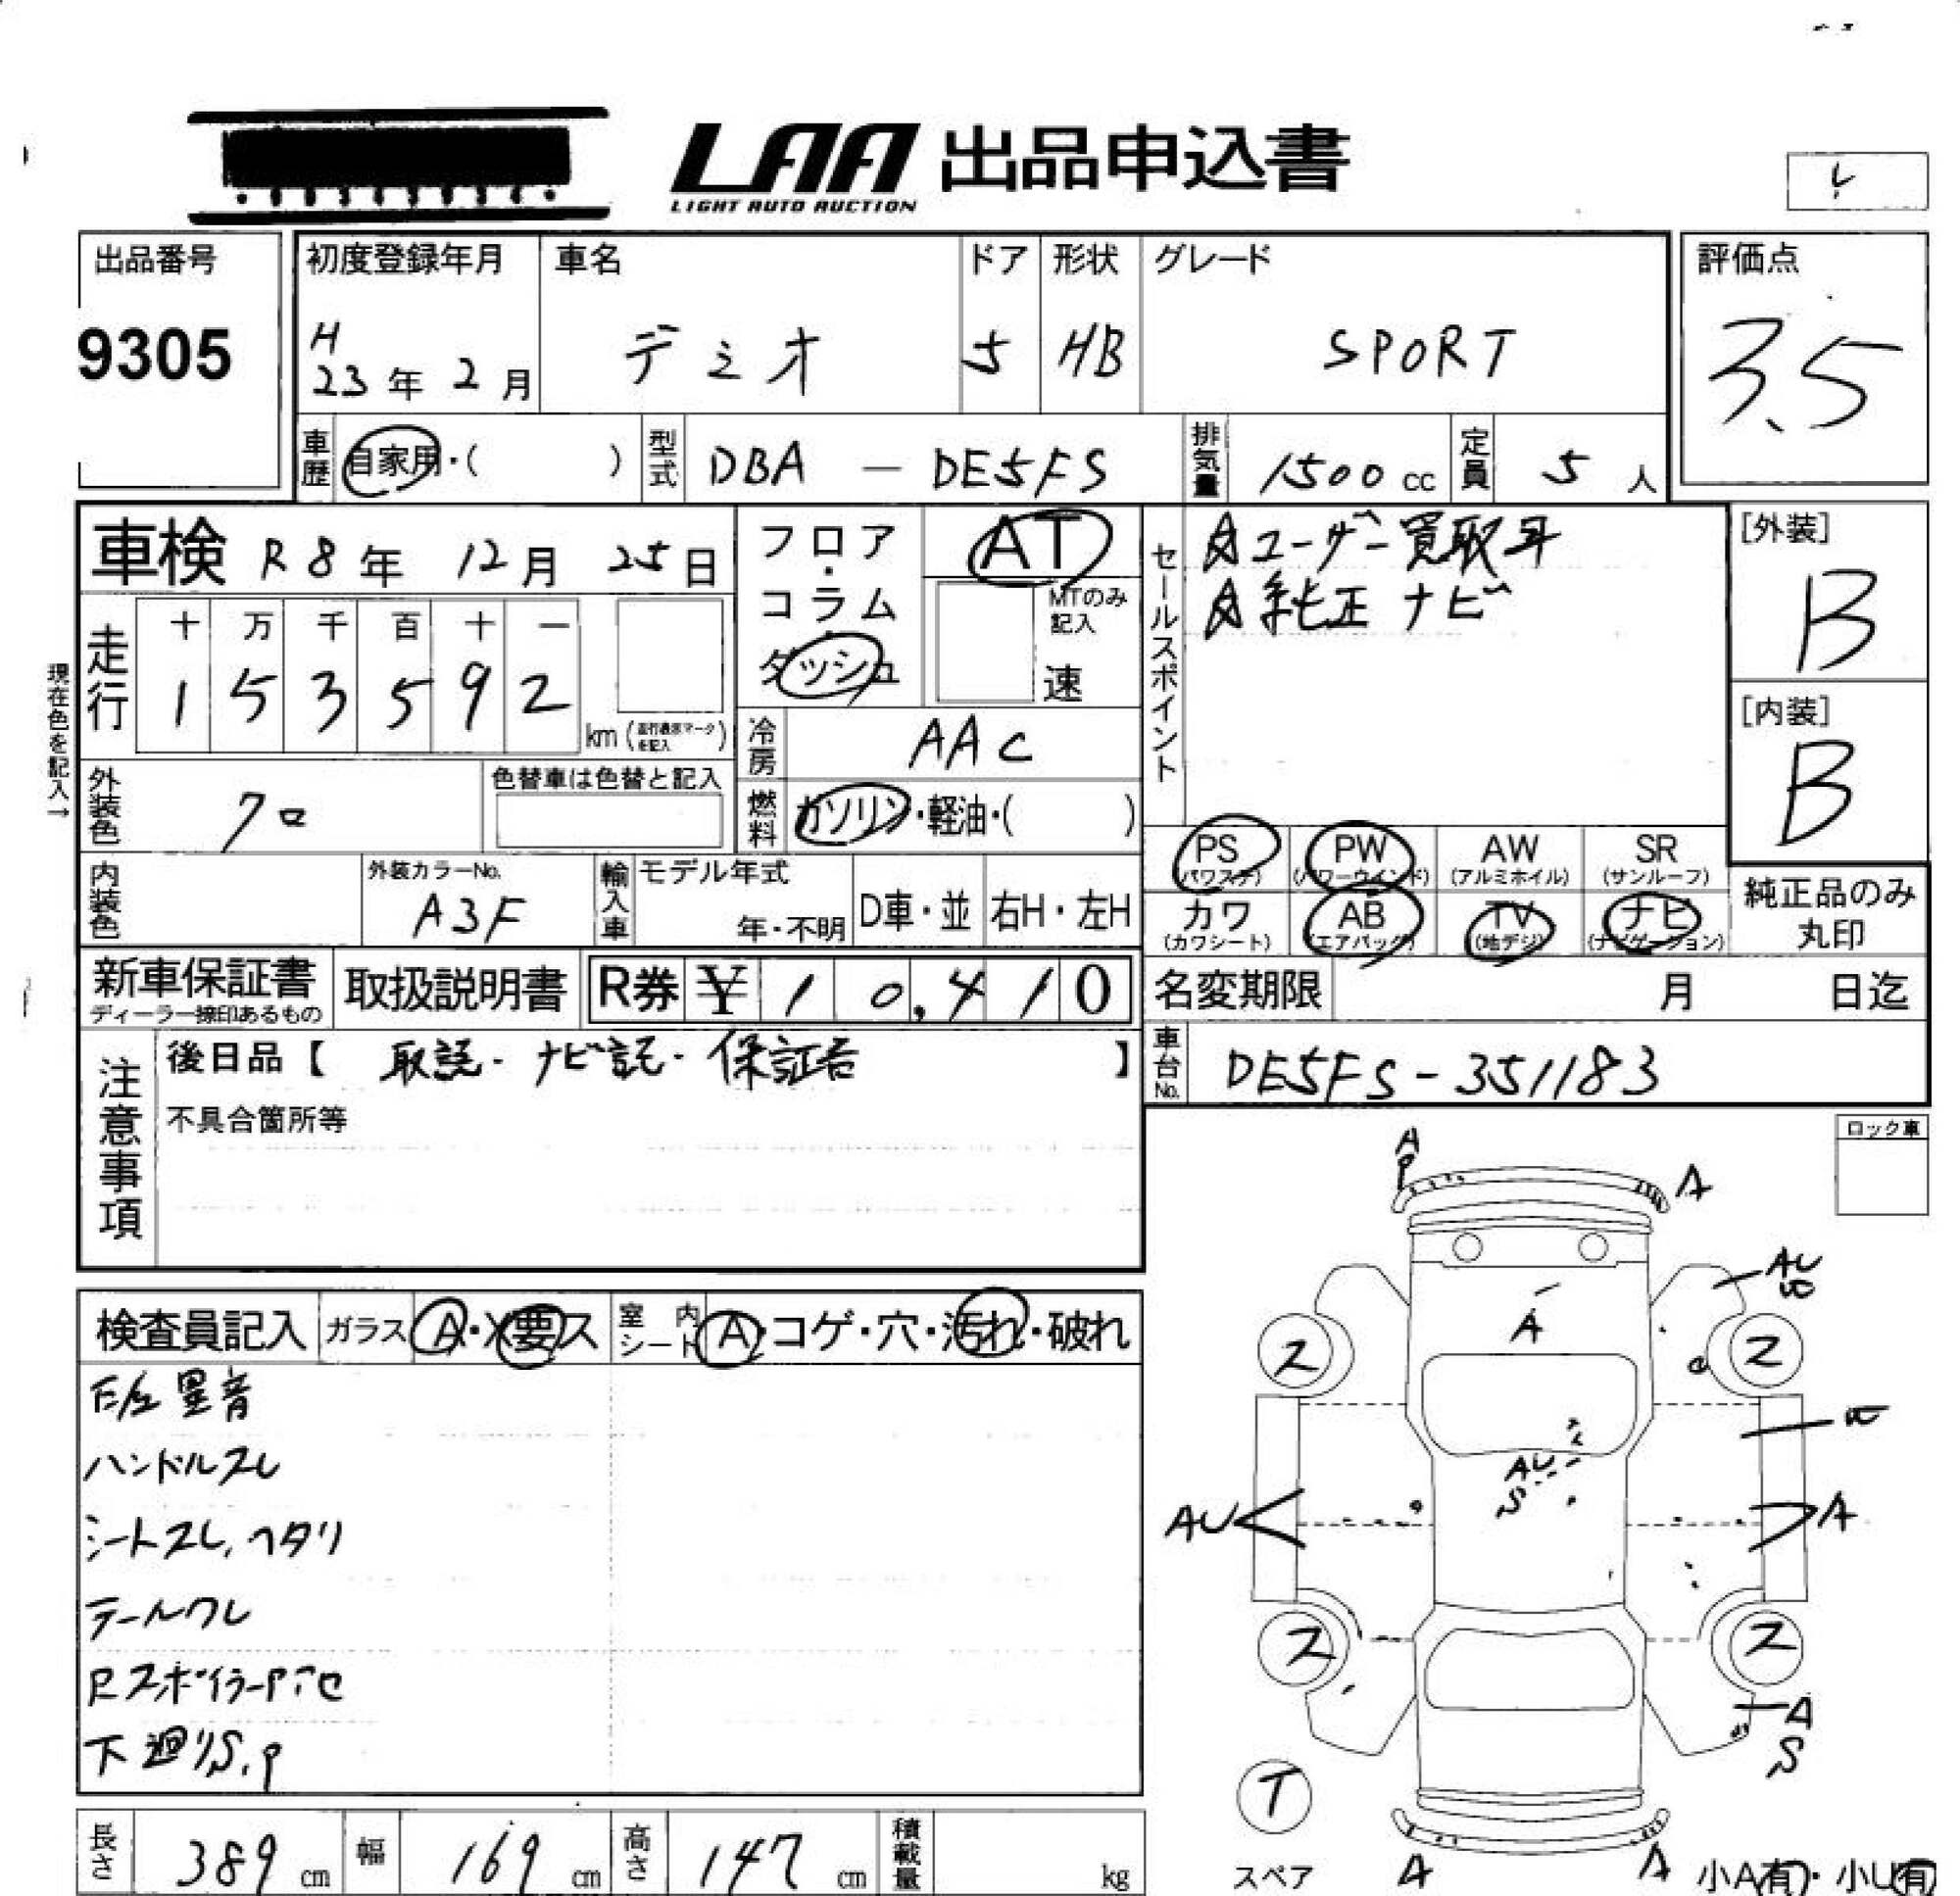 LAA 出品申込書
LIGHT AUTO AUCTION
出品番号
9305
初度登録年月 車名 ドア 形状 グレード 評価点
H
23年 2月 デミオ 5 HB SPORT 3.5
車歴 自家用・( ) 型式 DBA — DE5FS 排気量 1500cc 定員 5人
車検 R8年 12月 25日
フロア・コラム・ダッシュ
AT
MTのみ記入
速
セールスポイント
☆ユーザー買取车
☆純正ナビ
[外装]
B
[内装]
B
現在色を記入→
走行
十 万 千 百 十 一
1 5 3 5 9 2
km (走行表示マークを記入)
冷房 AAC
外装色 クロ
色替車は色替と記入
燃料 ガソリン・軽油・( )
PS
(パワステ)
PW
(パワーウインド)
AW
(アルミホイル)
SR
(サンルーフ)
内装色
外装カラーNo.
A3F
輸入車
モデル年式
年・不明
D車・並
右H・左H
カワ
(カワシート)
AB
(エアバッグ)
TV
(地デジ)
ナビ
(ナビゲーション)
純正品のみ
丸印
新車保証書
ディーラー捺印あるもの
取扱説明書
R券 ¥ 10,410
名変期限 月 日迄
注意事項
後日品【 取説・ナビ記・保証書 】
不具合箇所等
車台No. DE5FS-351183
ロック車
A
P
A
AU
A
ス
ス
AU
S
AU
A
ス
ス
A
S
検査員記入 ガラス A・X要ス 室内シート A・コゲ・穴・汚れ・破れ
F/左異音
ハンドルスレ
シートスレ、ヘタリ
テールワレ
Rスポイラー
下廻りS.P
T
スペア
A
A
小A有・小U有
長さ 389cm 幅 169cm 高さ 147cm 積載量 kg